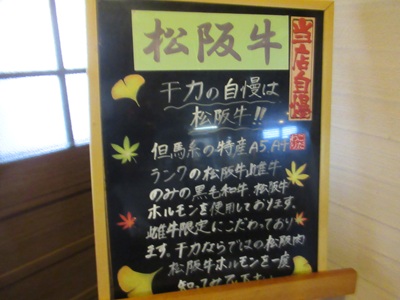 松阪牛
当店自慢
千力の自慢は
松阪牛!!
但馬系の特産A5A4
ランクの松阪牛雌牛
のみの黒毛和牛、松阪牛
ホルモンを使用しております。
雌牛限定にこだわっており
ます。千力ならではの松阪肉
松阪牛ホルモンを一度